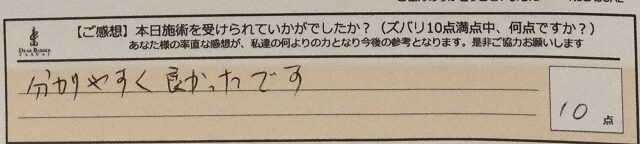 【ご感想】本日施術を受けられていかがでしたか？（ズバリ10点満点中、何点ですか？）
あなた様の率直な感想が、私達の何よりの力となり今後の参考となります。是非ご協力お願いします
分かりやすく良かったです
10点